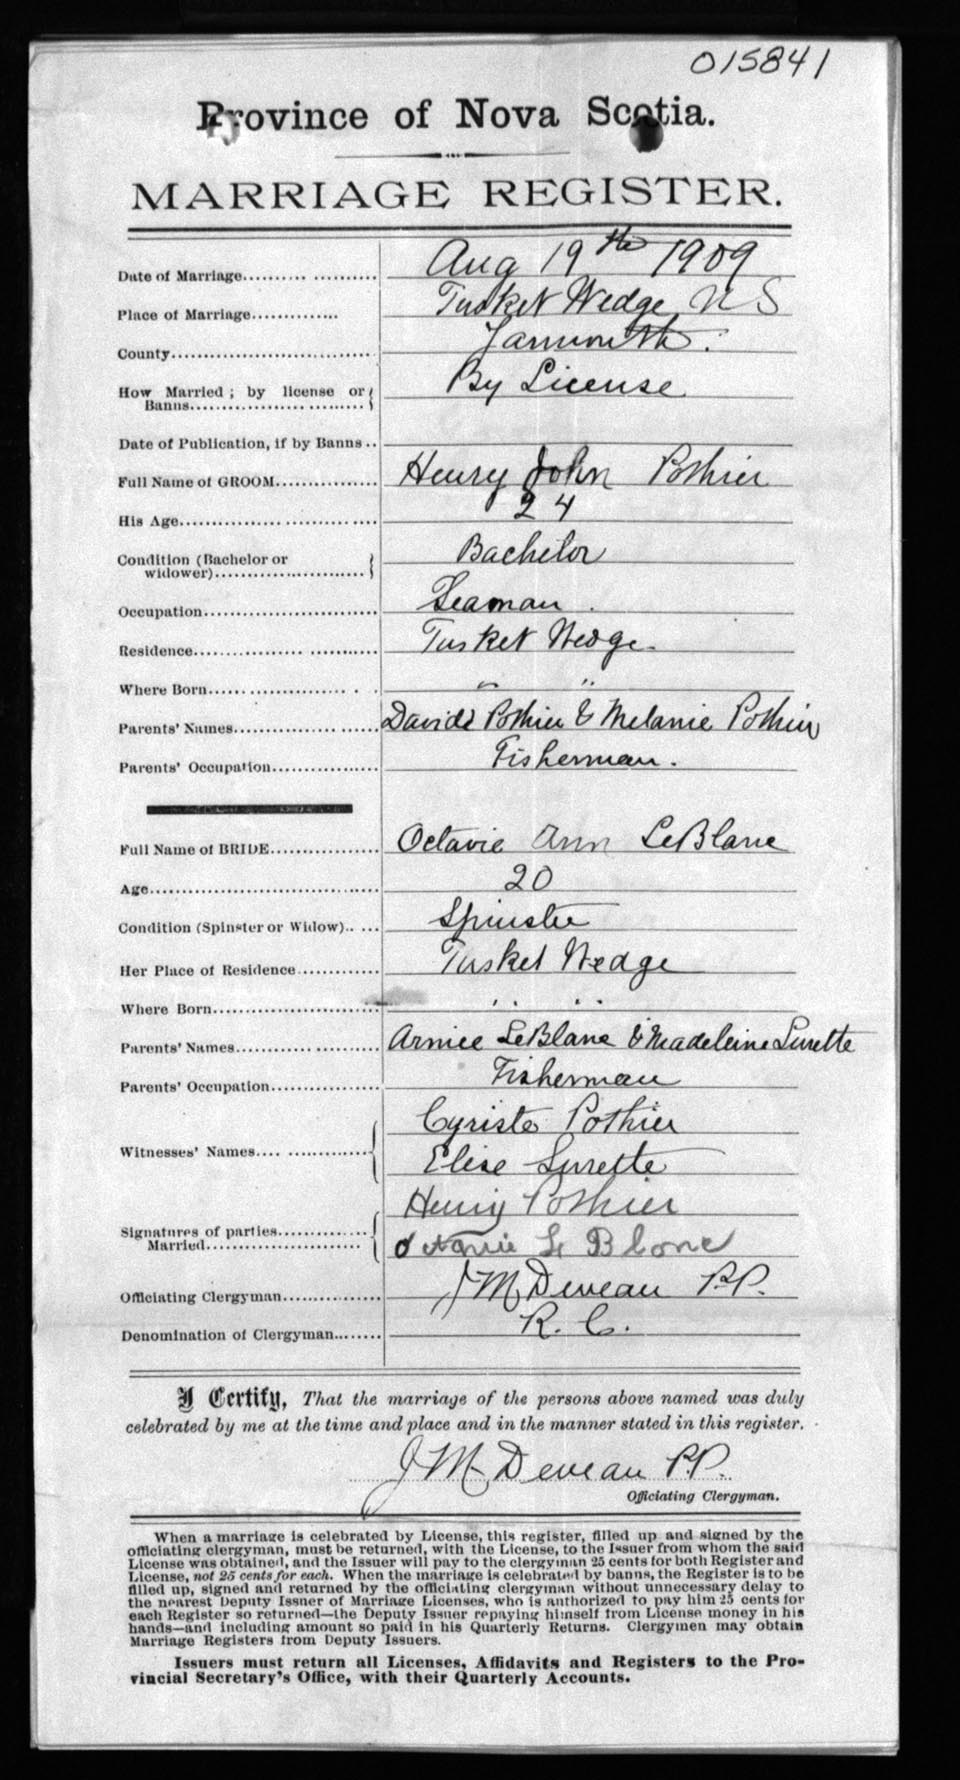 015841
Province of Nova Scotia.
MARRIAGE REGISTER.
Date of Marriage.......... .......... Aug 19th 1909
Place of Marriage............. Tusket Wedge N S
County............................. Yarmouth.
How Married ; by license or By License
Banns.................. .........
Date of Publication, if by Banns ..
Full Name of GROOM............... Henry John Pothier
His Age................. ......... .... 24
Condition (Bachelor or Bachelor
widower)........................
Occupation......................... Seaman.
Residence................ .......... Tusket Wedge.
Where Born...... .............. . . " "
Parents' Names............... ...... Davide Pothier & Melanie Pothier
Parents' Occupation................ Fisherman.
Full Name of BRIDE................ Octavie Ann LeBlanc
Age.................................. 20
Condition (Spinster or Widow).. ... Spinster
Her Place of Residence............ Tusket Wedge
Where Born......................... " "
Parents' Names............. ......... LeBlanc & Madeleine Surette
Parents' Occupation................ Fisherman
Witnesses' Names.... .............. Pothier
Elise Surette
Signatures of parties.............. Henry Pothier
Married........................ Octavie Le Blanc
Officiating Clergyman.............. J M Deveau P.P.
Denomination of Clergyman........ R. C.
I Certify, That the marriage of the persons above named was duly
celebrated by me at the time and place and in the manner stated in this register.
J M Deveau P.P.
Officiating Clergyman.
When a marriage is celebrated by License, this register, filled up and signed by the
officiating clergyman, must be returned, with the License, to the Issuer from whom the said
License was obtained, and the Issuer will pay to the clergyman 25 cents for both Register and
License, not 25 cents for each. When the marriage is celebrated by banns, the Register is to be
filled up, signed and returned by the officiating clergyman without unnecessary delay to
the nearest Deputy Issuer of Marriage Licenses, who is authorized to pay him 25 cents for
each Register so returned—the Deputy Issuer repaying himself from License money in his
hands—and including amount so paid in his Quarterly Returns. Clergymen may obtain
Marriage Registers from Deputy Issuers.
Issuers must return all Licenses, Affidavits and Registers to the Pro-
vincial Secretary's Office, with their Quarterly Accounts.